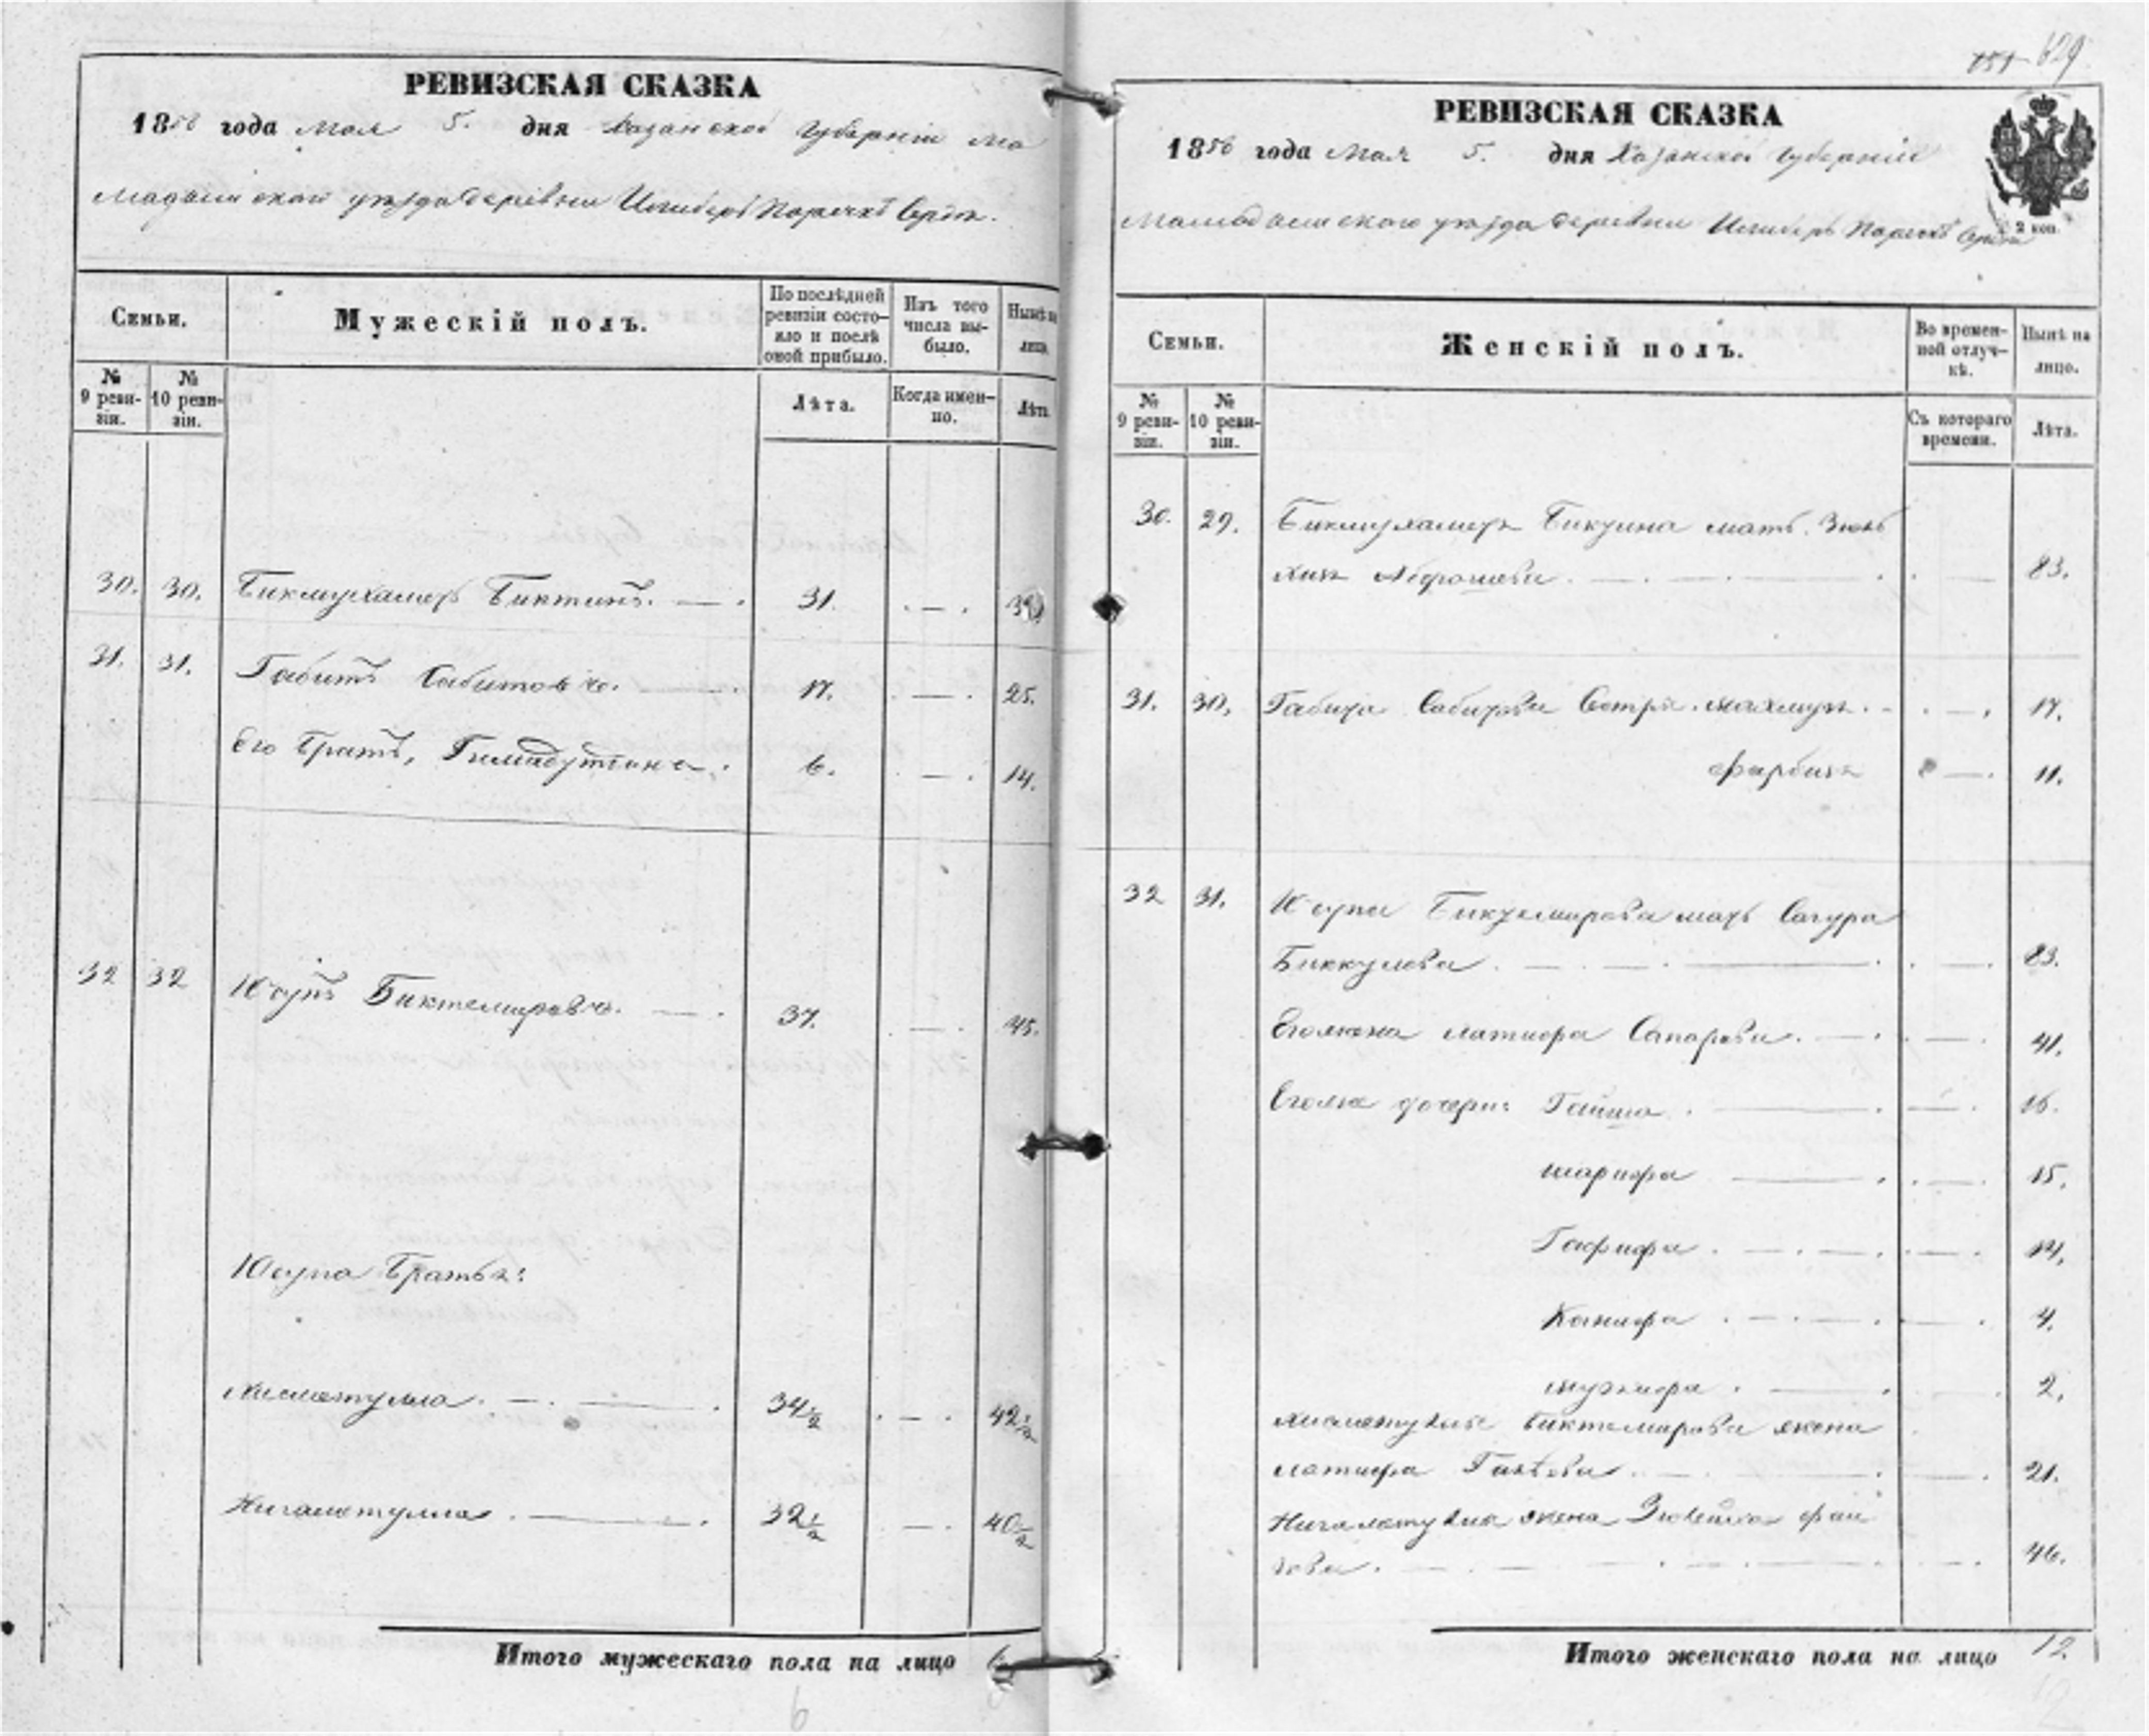 РЕВИЗСКАЯ СКАЗКА
1858 года Мая 5. дня Казанской Губерніи Ма
мадышской уезда деревни
Семьи.
Мужескій полъ.
По послѣдней ревизіи состояло и послѣ оной прибыло.
Изъ того числа выбыло.
Нынѣ на лицо
№ 9 ревизіи.
№ 10 ревизіи.
Лѣта.
Когда именно.
Лѣта
30. 30. Бикмухамет Биктинъ. 31.
31. 31. Габитъ Сабитовъ. 17. 25.
Его Братъ, 6. 14.
32 32 Юсупъ Биктемировъ. 37. 45.
Юсупа Братья:
Хисметулла. 34½ 42½
Нигаметулла. 32½ 40½
Итого мужескаго пола на лицо 6
629
РЕВИЗСКАЯ СКАЗКА
1858 года Мая 5. дня Казанской Губерніи
Мамадышскаго уезда деревни
2 коп.
Семьи.
Женскій полъ.
Во временной отлучкѣ.
Нынѣ на лицо.
№ 9 ревизіи.
№ 10 ревизіи.
Съ котораго времени.
Лѣта.
30. 29. мать
83.
31. 30. Габита Сабитова Сестры 17.
11.
32 31. Юсупа Биктемирова мать Сагура
Биккулова. 83.
Его жена Латифа Сапарова. 41.
Его же дочери: Гайша. 16.
Шарифа 15.
Гафифа. 14.
Ханифа. 4.
2.
Хисметуллы Биктемирова жена
Латифа 21.
Нигаметуллы жена
46.
Итого женскаго пола на лицо 12.